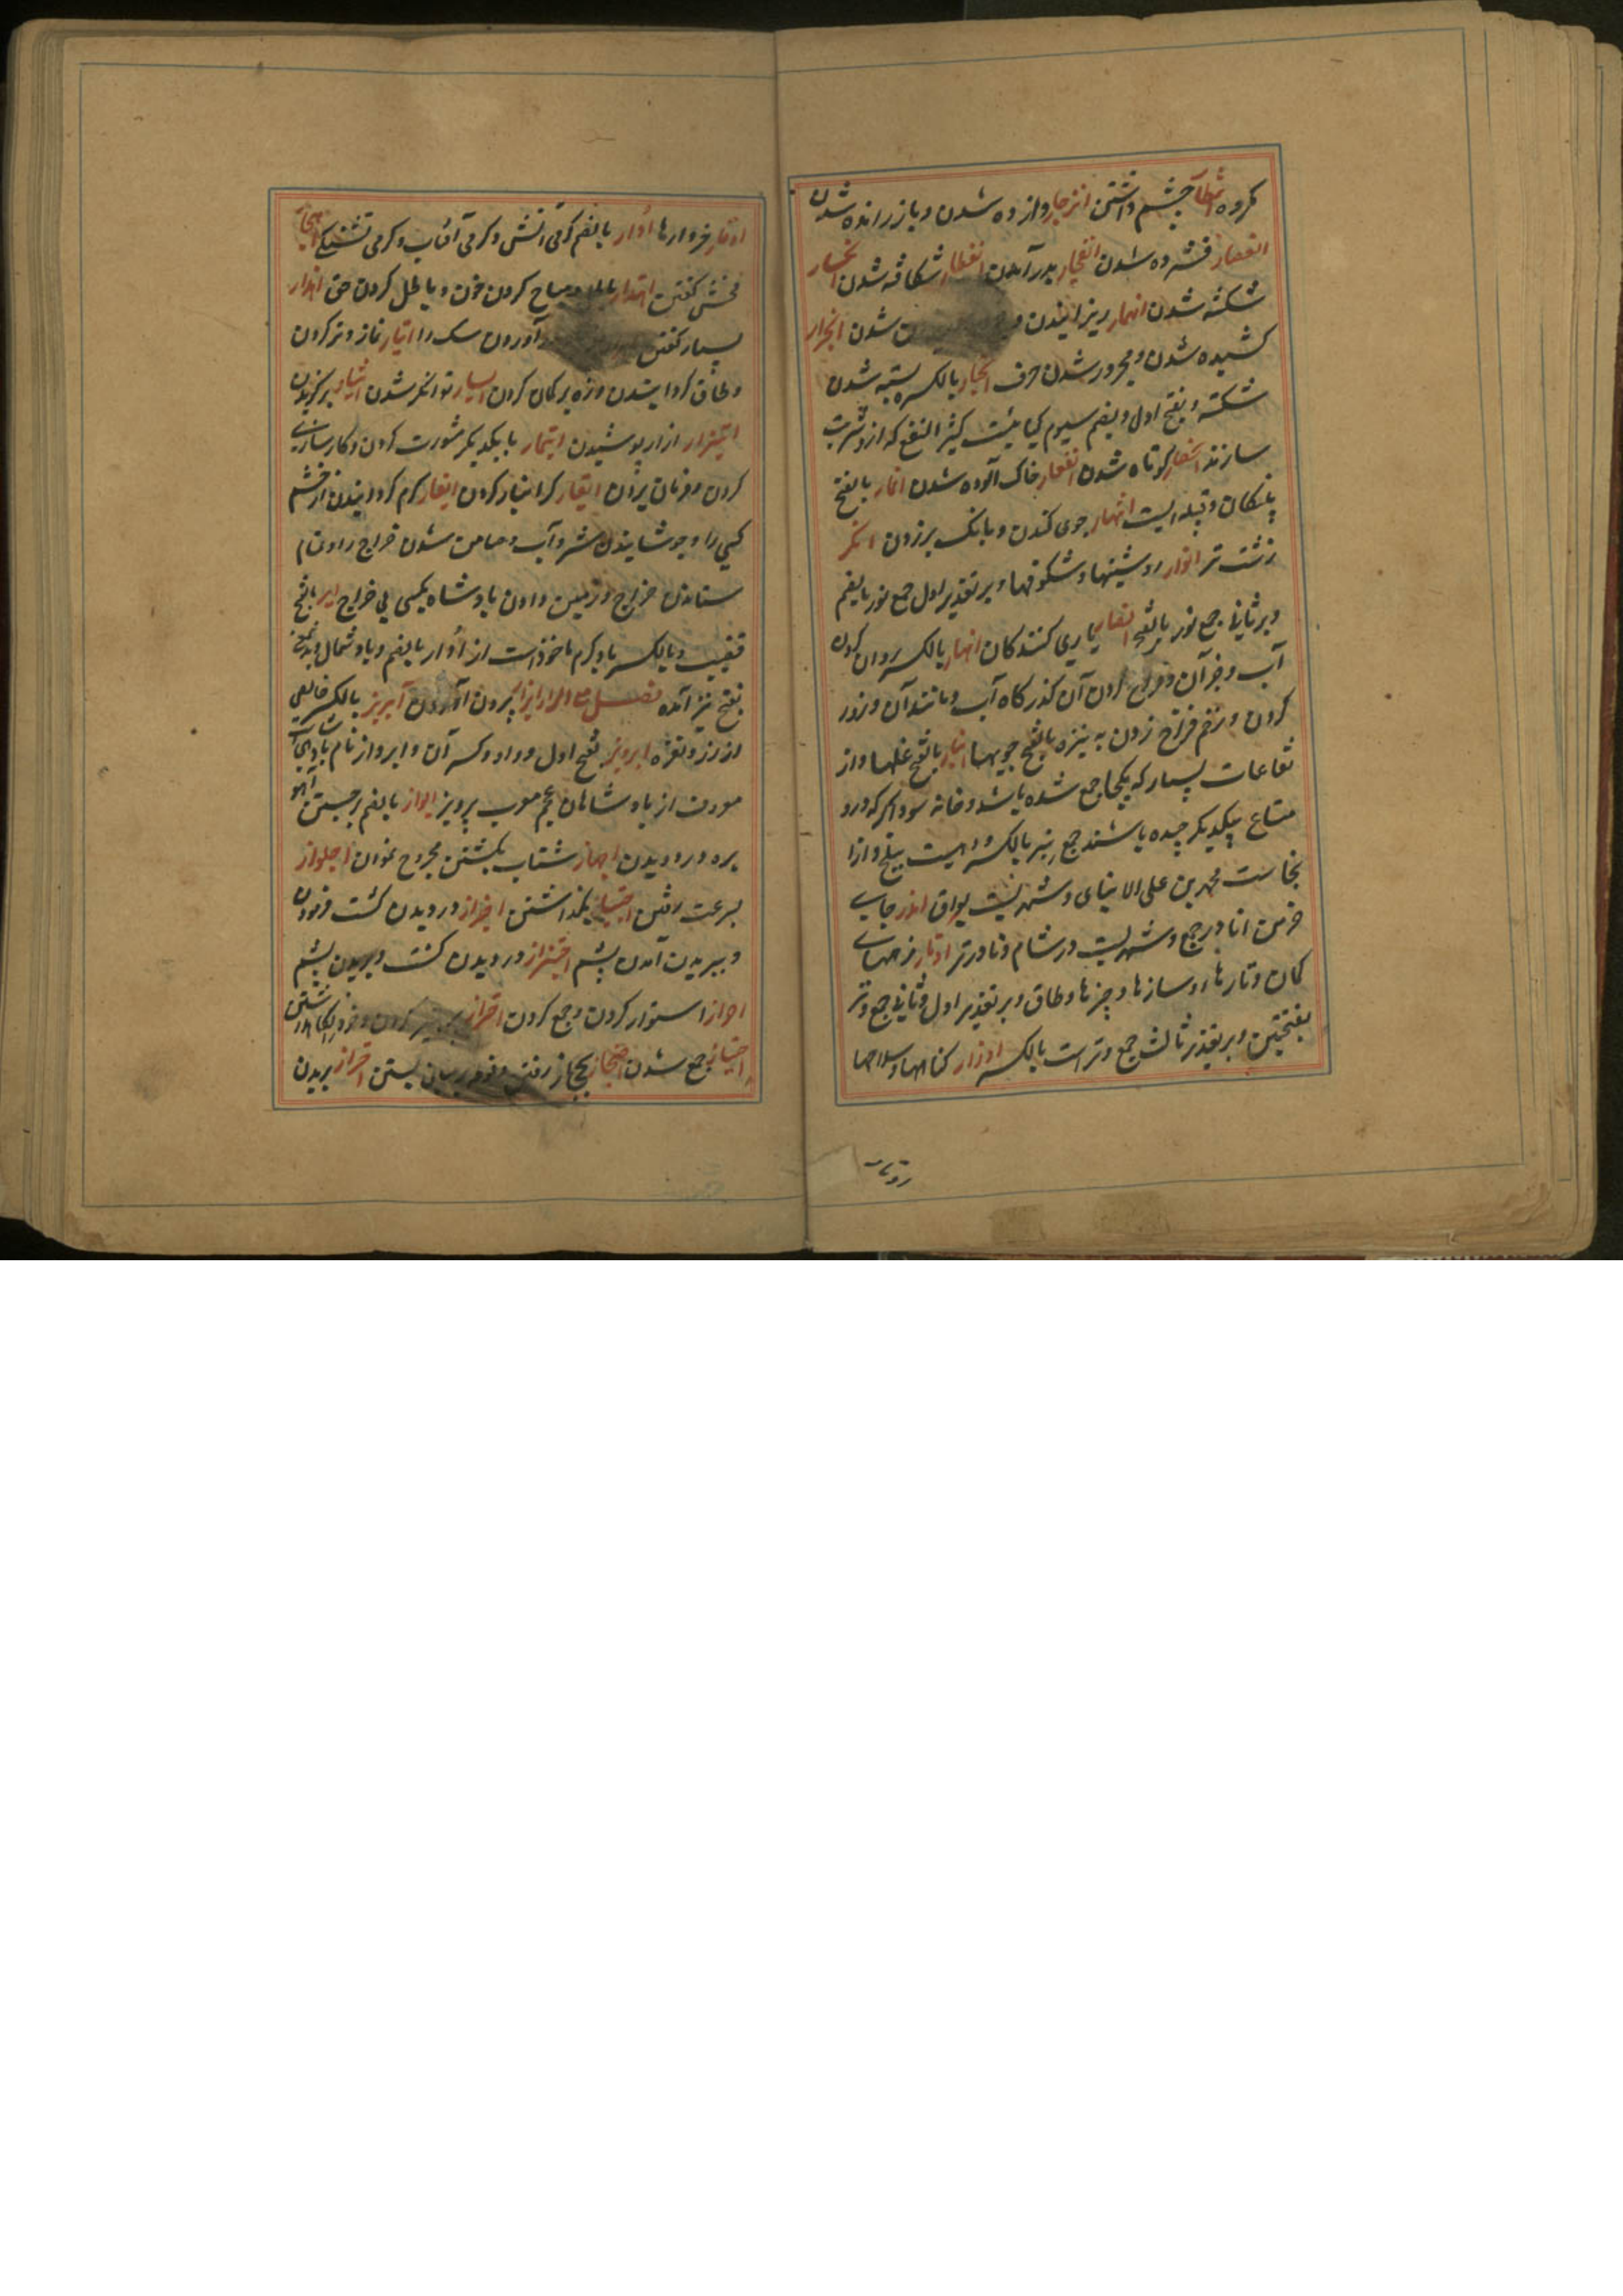 مکروه انتظار چشم داشتن انزجار وازده شدن و باز رانده شدن
انعصار فشرده شدن انفجار بدر آمدن انفطار شکافته شدن انکسار
شکسته شدن انهمار ریزانیدن شدن انجرار
کشیده شدن و مجرور شدن حرف انجبار بالکسر بسته شدن
شکسته و بفتح اول و بضم سیوم گیاهیست کثیر النفع که ازو شربت
سازند کوتاه شدن خاک آلوده شدن انمار بالفتح
پلنگان و قبیله ایست انتهار جوی کندن و بانگ بر زدن انکر
زشت تر انوار روشنیها و شکوفها و بر تقدیر اول جمع نور بالضم
و بر ثانی جمع نور بالفتح انصار یاری کنندگان انهار بالکسر روان کردن
آب و جز آن و فراخ کردن آن گذرگاه آب و مانند آن و زور
کردن و زخم فراخ زدن به نیزه بالفتح جویها انبار بالفتح غلها و از
بسیار که یکجا جمع شده باشد و خانه سوداگر که درو
متاع بیکدیگر چیده باشند جمع نبر بالکسر و دهیست ببلخ و ازا
نجاست محمد بن علی الانباری و شهریست بعراق اندر جای
خرمن اندر جمع و شهریست در شام و نادرتر اوتار زههای
کمان و تارهای سازها و چیزها و طاق و بر تقدیر اول و ثانی جمع وتر
بفتحتین و بر تقدیر ثالث جمع وتر است بالکسر اوزار گناهها و سلاحها
اوقار خروارها اوار بالضم گرمی آتش و گرمی آفتاب و گرمی تشنگی اهجار
فحش گفتن اهدار مباح کردن خون و باطل کردن حق اهذار
بسیار گفتن آوردن سگ را ایتار نماز وتر کردن
و طاق گردانیدن و زه بر کمان کردن ایسار توانگر شدن ایثار برگزیدن
ایتزار ازار پوشیدن ایتمار با یکدیگر مشورت کردن و کارسازی
کردن و فرمان بردن ایقار گرانبار کردن ایغار گرم گردانیدن از خشم
کسی را و جوشانیدن شیر و آب و ضامن شدن خراج را و تمام
ستاندن خراج و زمین دادن پادشاه بکسی بی خراج ایر بالفتح
قضیب و بالکسر باد گرم ماخوذ است از اوار بالضم و باد شمال و بدینمعنی
بفتح نیز آمده فصل مع الزا ابراز بیرون آوردن آبریز بالکسر خالص
از زر و نقره ابرویز بفتح اول و واو و کسر آن و ابرواز نام پادشاهی است
معروف از پادشاهان عجم معرب پرویز ابواز بالضم برجستن آهو
بره و دویدن اجهاز شتاب بکشتن مجروح نمودن اجلواز
بسرعت رفتن اجتیاز بگذاشتن اجزاز درویدن کشت فرمودن
و ببریدن آمدن پشم اجتزاز درویدن کشت و بریدن پشم
احراز استوار کردن و جمع کردن احتراز پرهیز کردن و خود را نگاهداشتن
احتیاز جمع شدن احتجاز بحجاز رفتن و فوطه بر میان بستن احتزاز بریدن